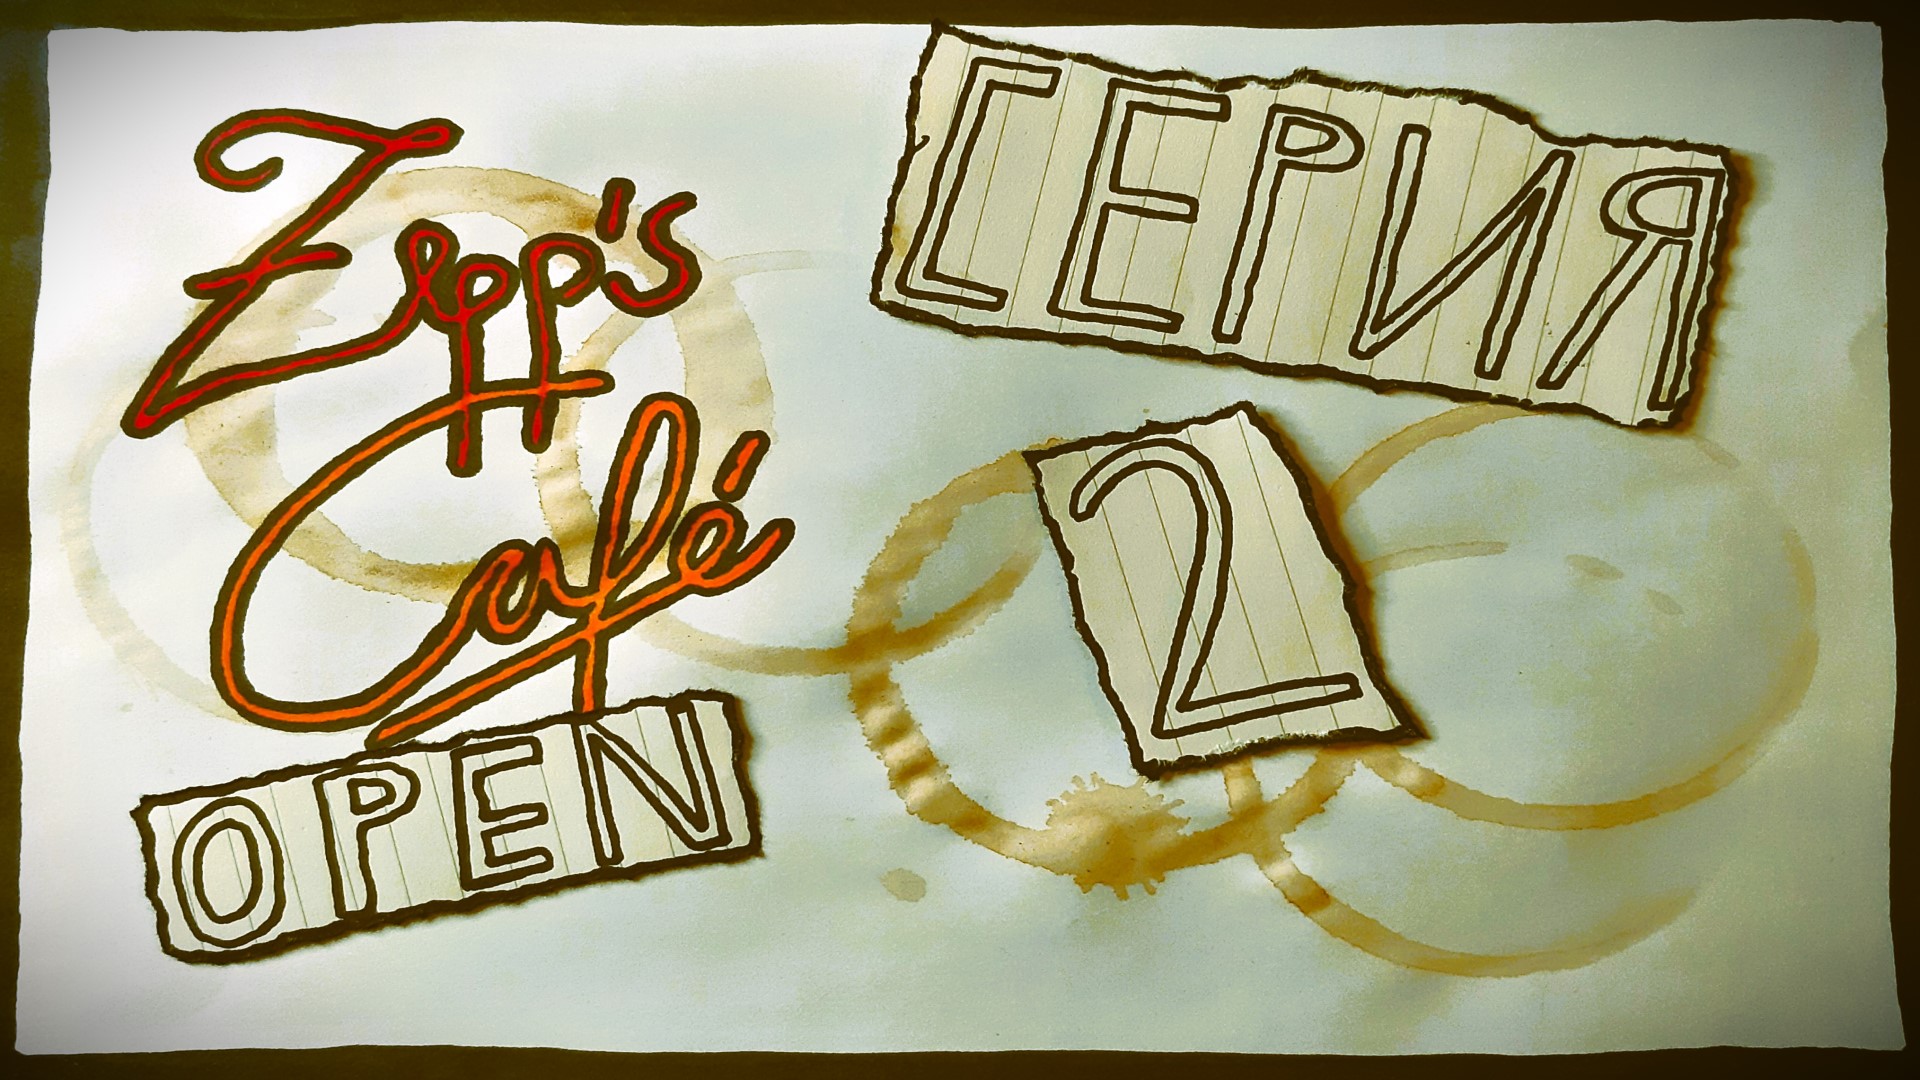 Zepp's
Café
OPEN
СЕРИЯ
2